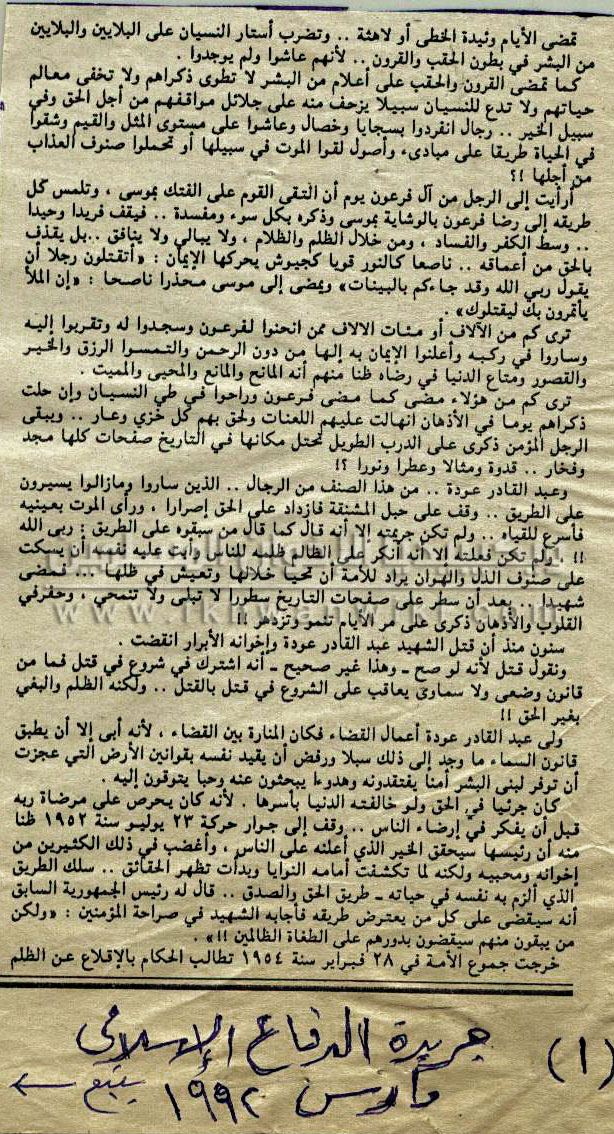 تمضى الأيام وئيدة الخطى أو لاهثة .. وتضرب أستار النسيان على البلايين والبلايين
من البشر في بطون الحقب والقرون .. لأنهم عاشوا ولم يوجدوا .
كما تمضى القرون والحقب على أعلام من البشر لا تطوى ذكراهم ولا تخفى معالم
حياتهم ولا تدع للنسيان سبيلا يزحف منه على جلائل مواقفهم من أجل الحق وفي
سبيل الخير .. رجال انفردوا بسجايا وخصال وعاشوا على مستوى المثل والقيم وشقوا
في الحياة طريقا على مبادىء وأصول لقوا الموت في سبيلها أو تحملوا صنوف العذاب
من أجلها !؟
أرأيت إلى الرجل من آل فرعون يوم أن التقى القوم على الفتك بموسى ، وتلمس كل
طريقه إلى رضا فرعون بالوشاية بموسى وذكره بكل سوء ومفسدة .. فيقف فريدا وحيدا
.. وسط الكفر والفساد ، ومن خلال الظلم والظلام ، ولا يبالي ولا ينافق ..بل يقذف
بالحق من أعماقه .. ناصعا كالنور قويا كجيوش يحركها الإيمان : «أتقتلون رجلا أن
يقول ربي الله وقد جاءكم بالبينات» ويمضى إلى موسى محذرا ناصحا : «إن الملأ
يأتمرون بك ليقتلوك» .
ترى كم من الآلاف أو مئات الالاف ممن انحنوا لفرعون وسجدوا له وتقربوا إليه
وساروا في ركبه وأعلنوا الإيمان به إلها من دون الرحمن والتمسوا الرزق والخير
والقصور ومتاع الدنيا في رضاه ظنا منهم أنه المانح والمانع والمحيى والمميت .
ترى كم من هؤلاء مضى كما مضى فرعون وراحوا في طي النسيان وإن حلت
ذكراهم يوما في الأذهان انهالت عليهم اللعنات ولحق بهم كل خزي وعار .. ويبقى
الرجل المؤمن ذكرى على الدرب الطويل تحتل مكانها في التاريخ صفحات كلها مجد
وفخار .. قدوة ومثالا وعطرا ونورا ؟!
وعبد القادر عودة .. من هذا الصنف من الرجال .. الذين ساروا ومازالوا يسيرون
على الطريق .. وقف على حبل المشنقة فازداد على الحق إصرارا ، ورأى الموت بعينيه
فأسرع للقياه .. ولم تكن جريمته إلا أنه قال كما قال من سبقوه على الطريق : ربى الله
!! . ولم تكن فعلته إلا أنه أنكر على الظالم ظلمه للناس وأبت عليه نفسه أن يسكت
على صنوف الذل والهوان يراد للأمة أن تحيا خلالها وتعيش في ظلها ... فمضى
شهيدا .. بعد أن سطر على صفحات التاريخ سطورا لا تبلى ولا تنمحي ، وحفر في
القلوب والأذهان ذكرى على مر الأيام تنمو وتزدهر !!
سنون منذ أن قتل الشهيد عبد القادر عودة وإخوانه الأبرار انقضت .
ونقول قتل لأنه لو صح ـ وهذا غير صحيح ـ أنه اشترك في شروع في قتل فما من
قانون وضعى ولا سماوى يعاقب على الشروع في قتل بالقتل .. ولكنه الظلم والبغي
بغير الحق !!
ولى عبد القادر عودة أعمال القضاء فكان المنارة بين القضاء ، لأنه أبى إلا أن يطبق
قانون السماء ما وجد إلى ذلك سبلا ورفض أن يقيد نفسه بقوانين الأرض التي عجزت
أن توفر لبنى البشر أمنا يفتقدونه وهدوءا يبحثون عنه وحبا يتوقون إليه .
كان جرئيا في الحق ولو خالفته الدنيا بأسرها . لأنه كان يحرص على مرضاة ربه
قبل أن يفكر في إرضاء الناس .. وقف إلى جوار حركة ٢٣ يوليو سنة ١٩٥٢ ظنا
منه أن رئيسها سيحقق الخير الذي أعلنه على الناس ، وأغضب في ذلك الكثيرين من
إخوانه ومحبيه ولكنه لما تكشفت أمامه النوايا وبدأت تظهر الحقائق .. سلك الطريق
الذي ألزم به نفسه في حياته ـ طريق الحق والصدق .. قال له رئيس الجمهورية السابق
أنه سيقضى على كل من يعترض طريقه فأجابه الشهيد في صراحة المؤمنين : «ولكن
من يبقون منهم سيقضون بدورهم على الطغاة الظالمين !!» .
خرجت جموع الأمة في ٢٨ فبراير سنة ١٩٥٤ تطالب الحكام بالإقلاع عن الظلم
(١) جريدة الدفاع الإسلامي
مارس ١٩٩٢ يتبع